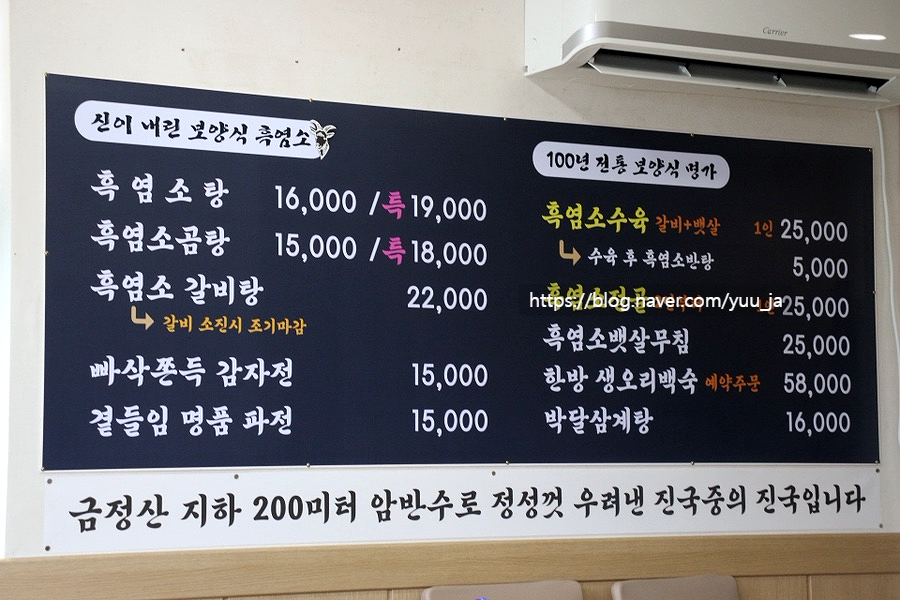 Carrier
신이 내린 보양식 흑염소
흑염소탕 16,000 / 특 19,000
흑염소곰탕 15,000 / 특 18,000
흑염소 갈비탕 22,000
갈비 소진시 조기마감
빠삭쫀득 감자전 15,000
곁들임 명품 파전 15,000
100년 전통 보양식 명가
흑염소수육 갈비+뱃살 1인 25,000
수육 후 흑염소반탕 5,000
흑염소전골 1인 25,000
https://blog.naver.com/yuu_ja
흑염소뱃살무침 25,000
한방 생오리백숙 예약주문 58,000
박달삼계탕 16,000
금정산 지하 200미터 암반수로 정성껏 우려낸 진국중의 진국입니다